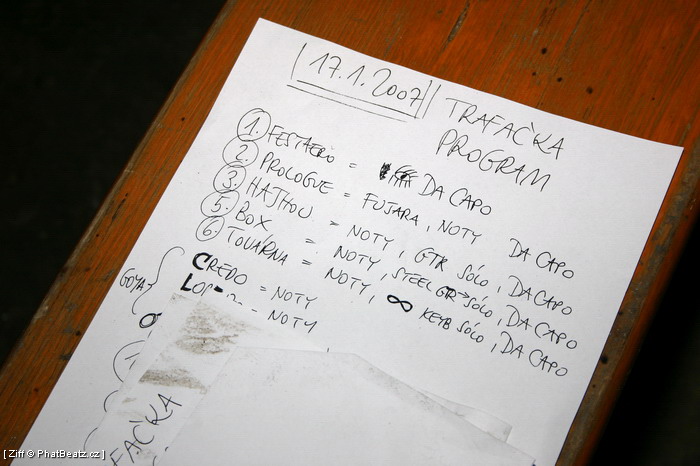 17.1.2007
TRAFAČKA
PROGRAM
1. FESTAERO = DA CAPO
2. PROLOGUE = FUJARA, NOTY DA CAPO
3. HAJHOU = NOTY, GTR SÓLO, DA CAPO
5. BOX = NOTY, STEEL GTR SÓLO, DA CAPO
6. TOVÁRNA = NOTY, ∞ KEYB SÓLO, DA CAPO
GOYA { CREDO = NOTY
NOTY
FAČKA
[ Ziff © PhatBeatz.cz ]